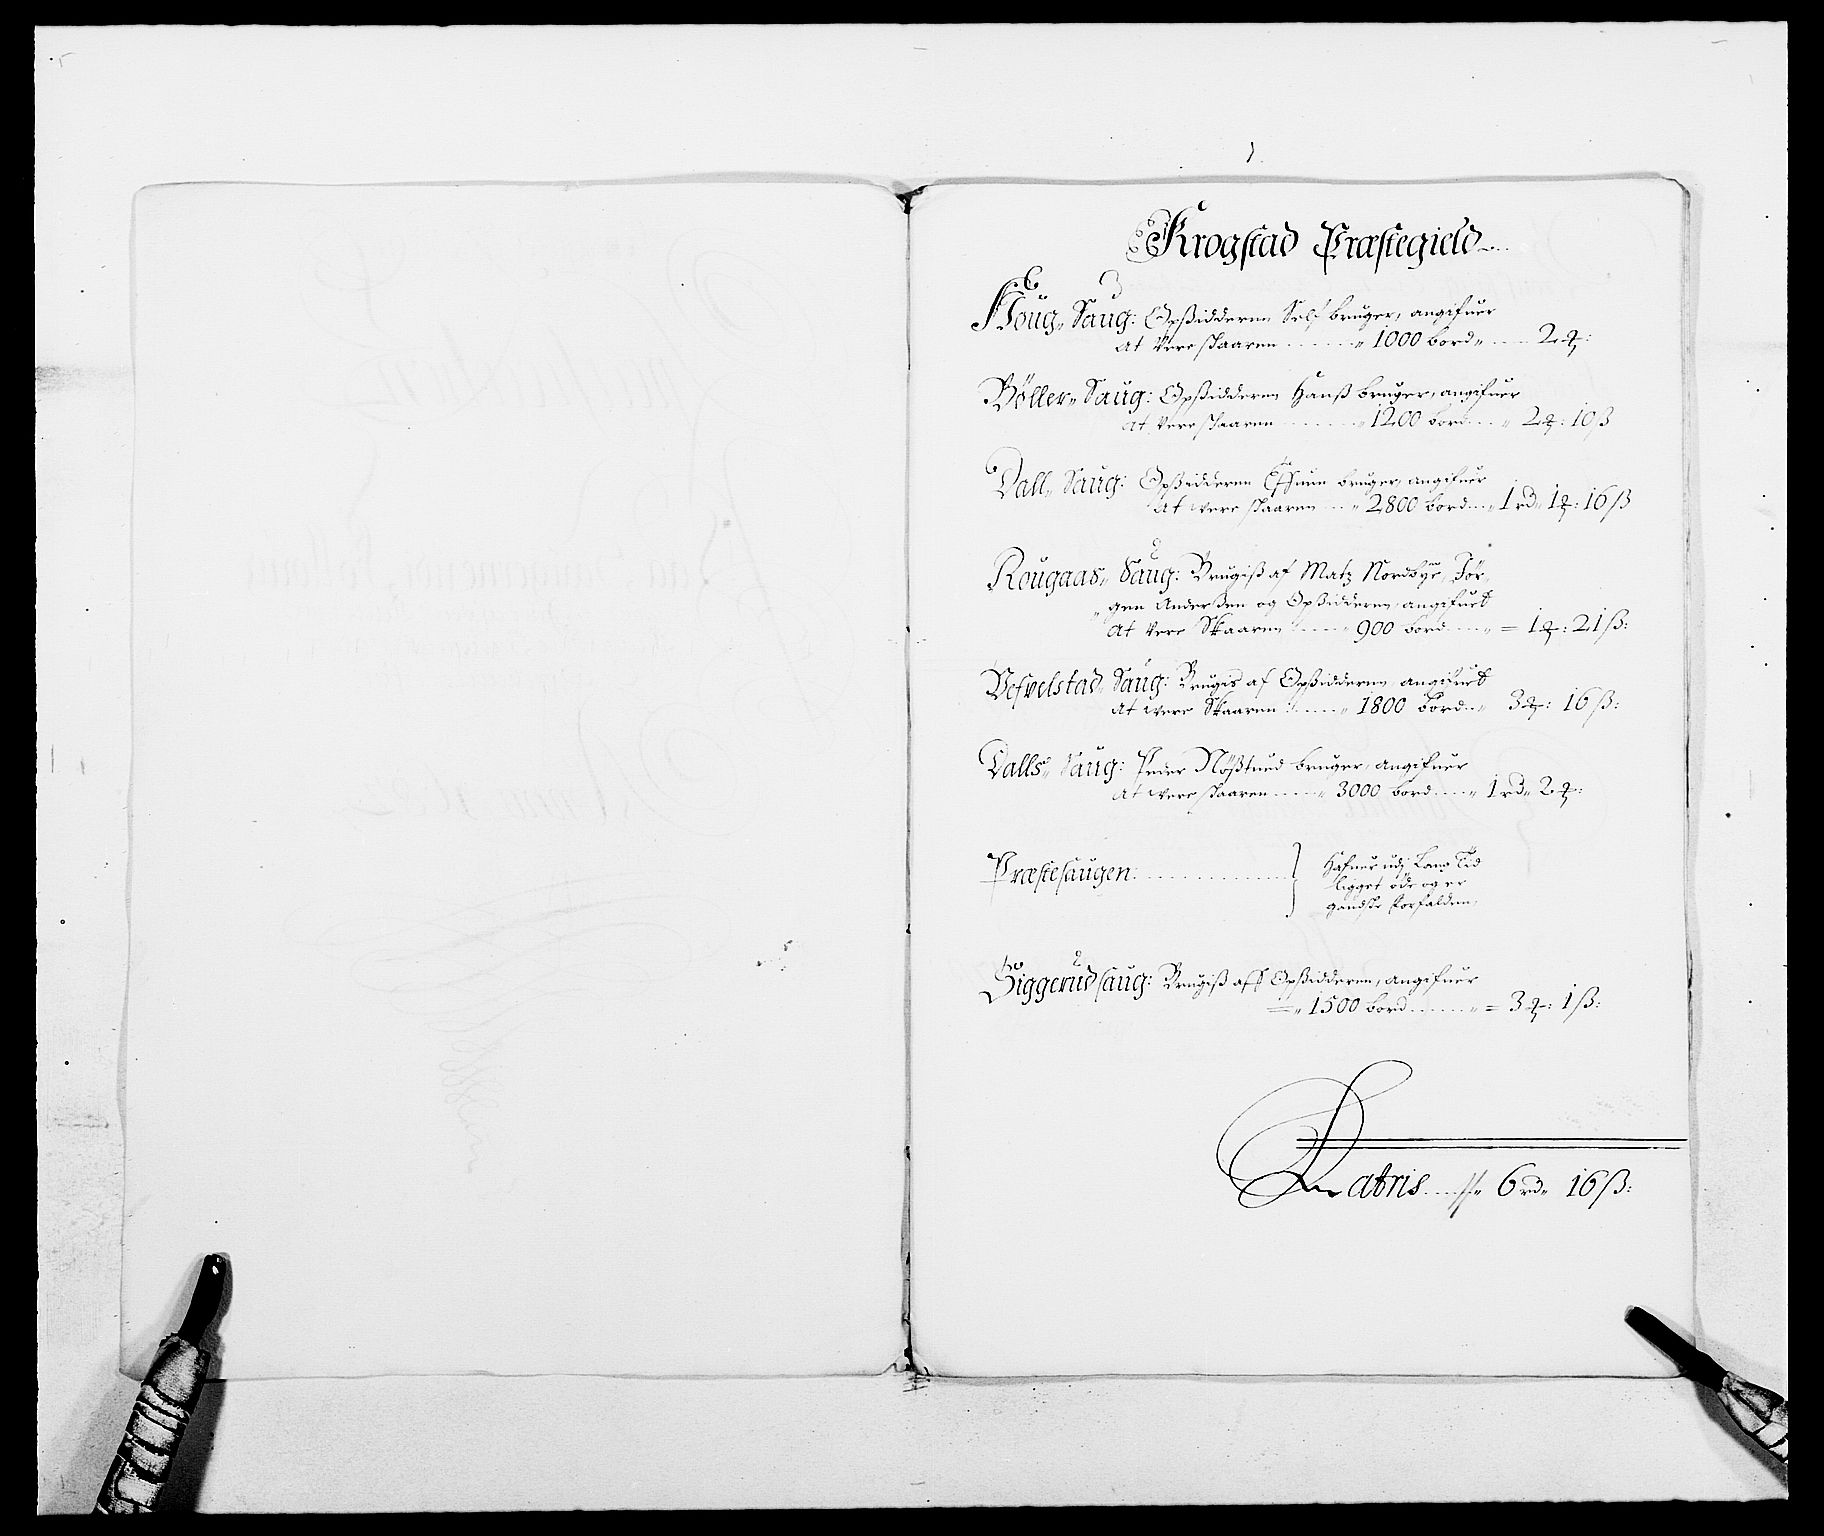 Krogstad Præstegield
Houg Saug: Opsidderen Self bruger, angifuer
at Vere skaaren ........ 1000 bord ..... 2 ℔:
Bøller Saug: Opsidderen Hanß bruger, angifuer
at Vere skaaren ........ 1200 bord .... 2 ℔: 10 ß
Dall Saug: Opsidderen bruger, angifuer
at were skaaren .... 2800 bord .... 1 rd 1 ℔: 16 ß
Rougaas Saug: Brugiß af Matz Nordbye, Jør-
gen Anderßen og Opsidderen, angifuet
at Vere Skaaren ..... 900 bord ..... = 1 ℔: 21 ß:
Vefvelstad Saug: Brugis af Opsidderen, angifuet
at were Skaaren ..... 1800 Bord .. 3 ℔: 16 ß:
Dalls Saug: Peder Nößtued bruger, angifuer
at were skaaren ..... 3000 bord .... 1 rd 2 ℔:
Præstesaugen: ............. } Hafuer udj Lang Tid
ligget øde og er
gandske forfalden,
Siggerud saug: Brugiß aff Opsidderen, angifuer
= 1500 bord ........ = 3 ℔: 1 ß:
Latris .... 6 rd 16 ß: